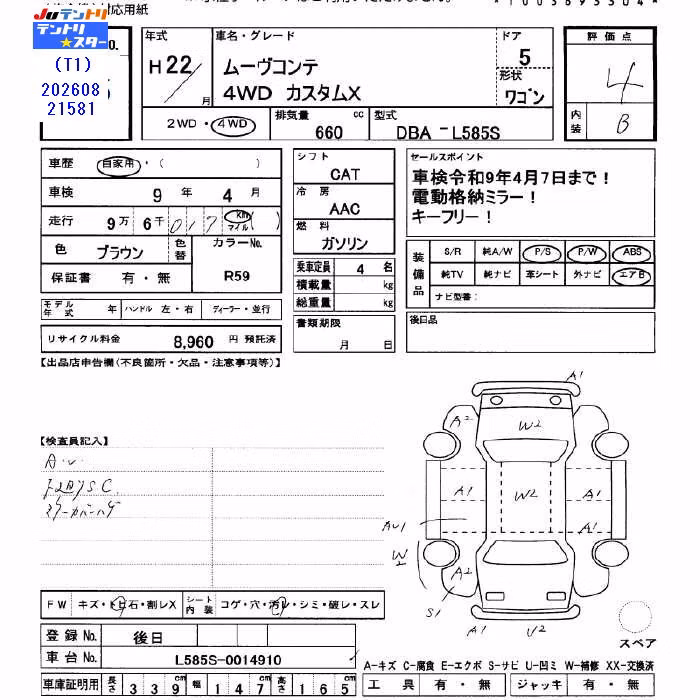 対応用紙
*1005893304*
JUテントリ
テントリ★スター
(T1)
202608
21581
年式
H22/
月
車名・グレード
ムーヴコンテ
4WD カスタムX
ドア
5
形状
ワゴン
評価点
4
内装
B
2WD・4WD
排気量
660
cc
型式
DBA - L585S
車歴
自家用・( )
車検
9 年 4 月
走行
9万 6千 017 km マイル ( )
色
ブラウン
色替
カラーNo.
R59
保証書
有・無
シフト
CAT
冷房
AAC
燃料
ガソリン
乗車定員
4 名
積載量
kg
総重量
kg
セールスポイント
車検令和9年4月7日まで!
電動格納ミラー!
キーフリー!
装備品
S/R 純A/W P/S P/W ABS
純TV 純ナビ 革シート 外ナビ エアB
ナビ型番:
モデル年式
年
ハンドル 左・右
ディーラー・並行
リサイクル料金
8,960 円 預託済
書類期限
月 日
後日品
【出品店申告欄(不良箇所・欠品・注意事項等)】
【検査員記入】
A1
A2
W2
A1
A1
W2
A1
AU1
A1
W2
A2
S1
A1
U2
FW
キズ・トビ石・割レX
シート内装
コゲ・穴・汚レ・シミ・破レ・スレ
登録No.
後日
車台No.
L585S-0014910
スペア
A-キズ C-腐食 E-エクボ S-サビ U-凹ミ W-補修 XX-交換済
車庫証明用
長さ
339
幅
147
高さ
165
工具
有・無
ジャッキ
有・無